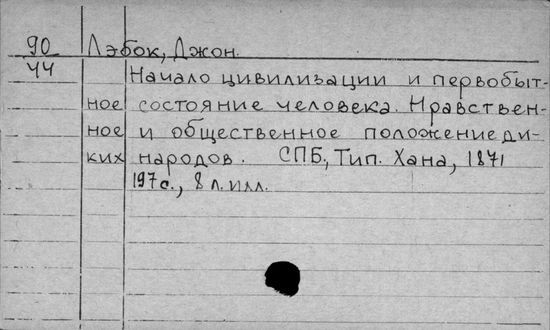 90 Лэбок, Джон.
44
Начало цивилизации и первобыт-
ное состояние человека. Нравствен-
ное и общественное положение ди-
ких народов. СПБ, Тип. Хана, 1871
197с., 8 л. илл.